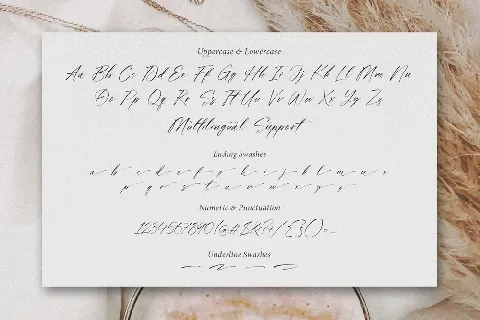 Uppercase & Lowercase
Aa Bb Cc Dd Ee Ff Gg Hh Ii Jj Kk Ll Mm Nn
Oo Pp Qq Rr Ss Tt Uu Vv Ww Xx Yy Zz
Multilingual Support
Ending swashes
a b c d e f g h i j k l m n o
p q r s t u v w x y z
Numeric & Punctuation
1234567890!@#&
Underline Swashes